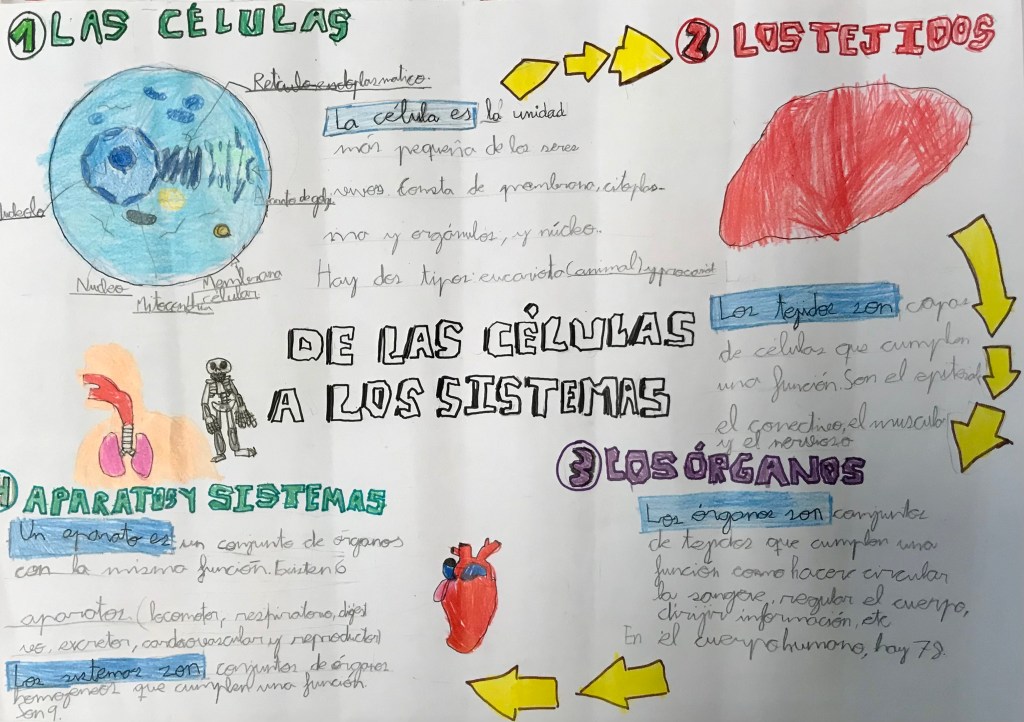 1 LAS CÉLULAS
Retículo endoplasmático
Aparato de golgi
Nucleolo
Nucleo
Mitocondria
Membrana
celular
La célula es la unidad
más pequeña de los seres
vivos. Consta de membrana, citoplas-
ma y orgánulos, y núcleo.
Hay dos tipos: eucariota (animal) y procariot
2 LOS TEJIDOS
Los tejidos son capas
de células que cumplen
una función. Son el epitelial
el conectivo, el muscular
y el nervioso
DE LAS CÉLULAS
A LOS SISTEMAS
3 LOS ÓRGANOS
Los órganos son conjuntos
de tejidos que cumplen una
función como hacer circular
la sangre, regular el cuerpo,
dirijir información, etc
En el cuerpo humano, hay 78.
4 APARATOS Y SISTEMAS
Un aparato es un conjunto de órganos
con la misma función. Existen 6
aparatos (locomotor, respiratorio, digest
ivo, excretor, cardiovascular y reproductor)
Los sistemas son conjuntos de órganos
homogeneos que cumplen una función.
Son 9.